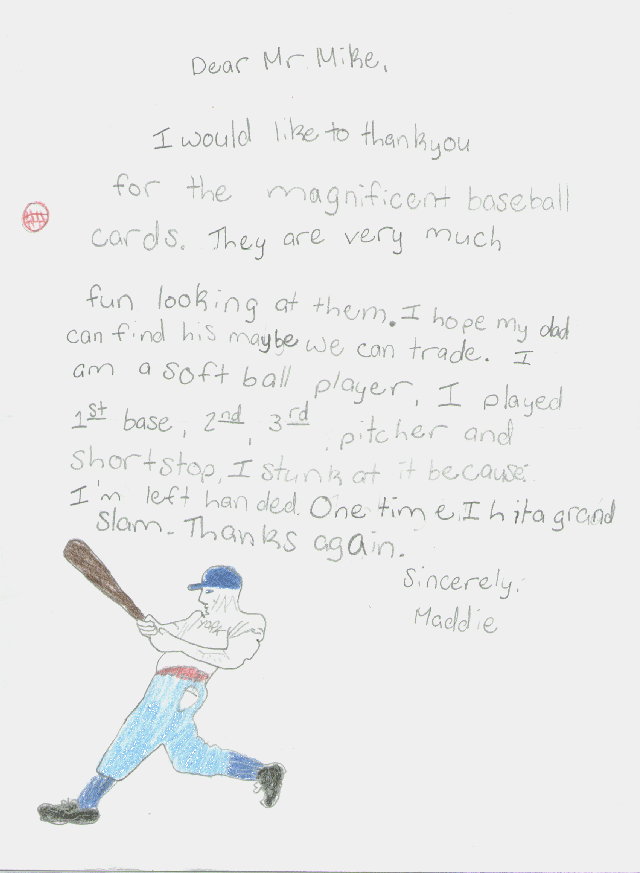 Dear Mr. Mike,
I would like to thankyou
for the magnificent baseball
cards. They are very much
fun looking at them. I hope my dad
can find his maybe we can trade. I
am a soft ball player. I played
1st base, 2nd, 3rd, pitcher and
shortstop, I stunk at it because
I'm left handed. One time I hit a grand
slam. Thanks again.
Sincerely,
Maddie